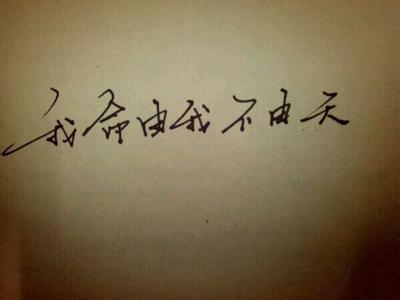 我命由我不由天